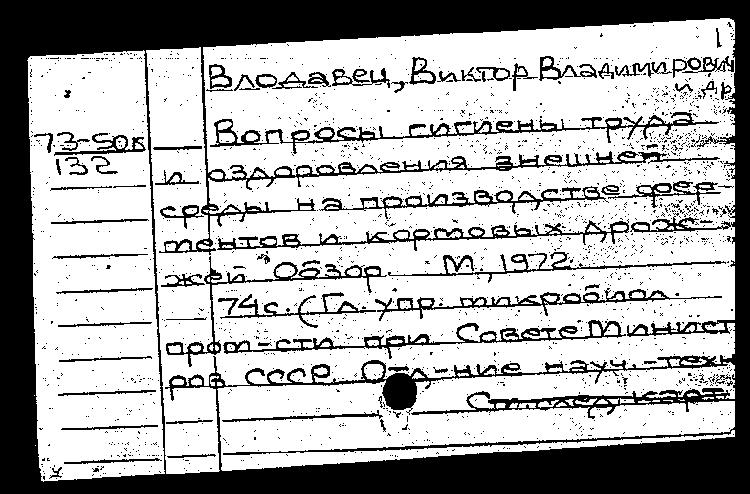 1
Влодавец, Виктор Владимирович
и др.
73-50к
132
Вопросы гигиены труда
и оздоровления внешней
среды на производстве фер-
ментов и кормовых дрож-
жей Обзор. М., 1972.
74с. (Гл. упр. микробиол.
пром-сти при Совете Минист
ров СССР. Отд-ние науч.-техн
См.след.карт.